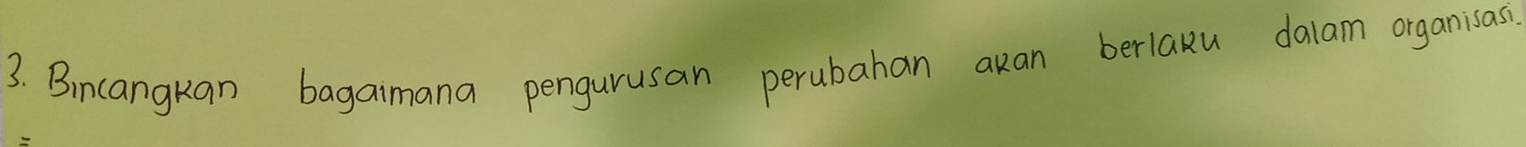 3. Bincangkan bagaimana pengurusan perubahan akan berlaku dalam organisasi.